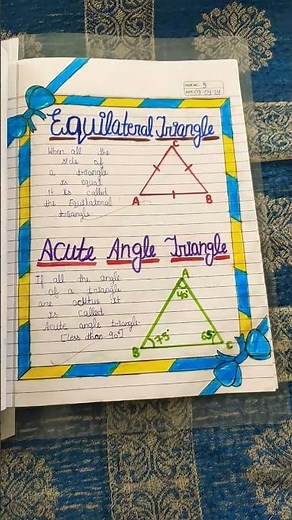 PAGE NO. 3
Equilateral Triangle
When all the
side of
a triangle
is equal
it is called
the Equilateral
triangle
C
A
B
Acute Angle Triangle
If all the angle
of a triangle
are acute it
is called
Acute angle triangle
[less than 90°]
A
45°
75°
B
C